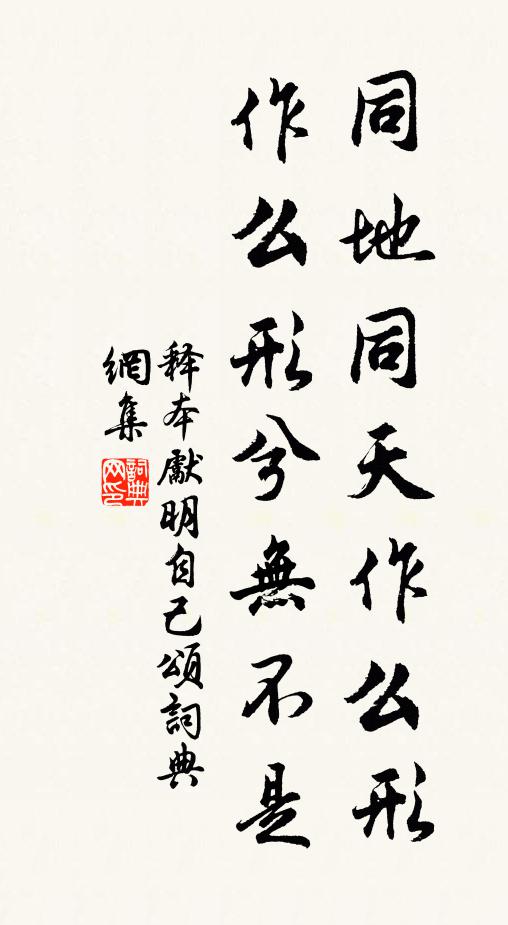 同地同天作么形
作么形兮無不是
释本獻明自己頌詞典
網集
詞典網印